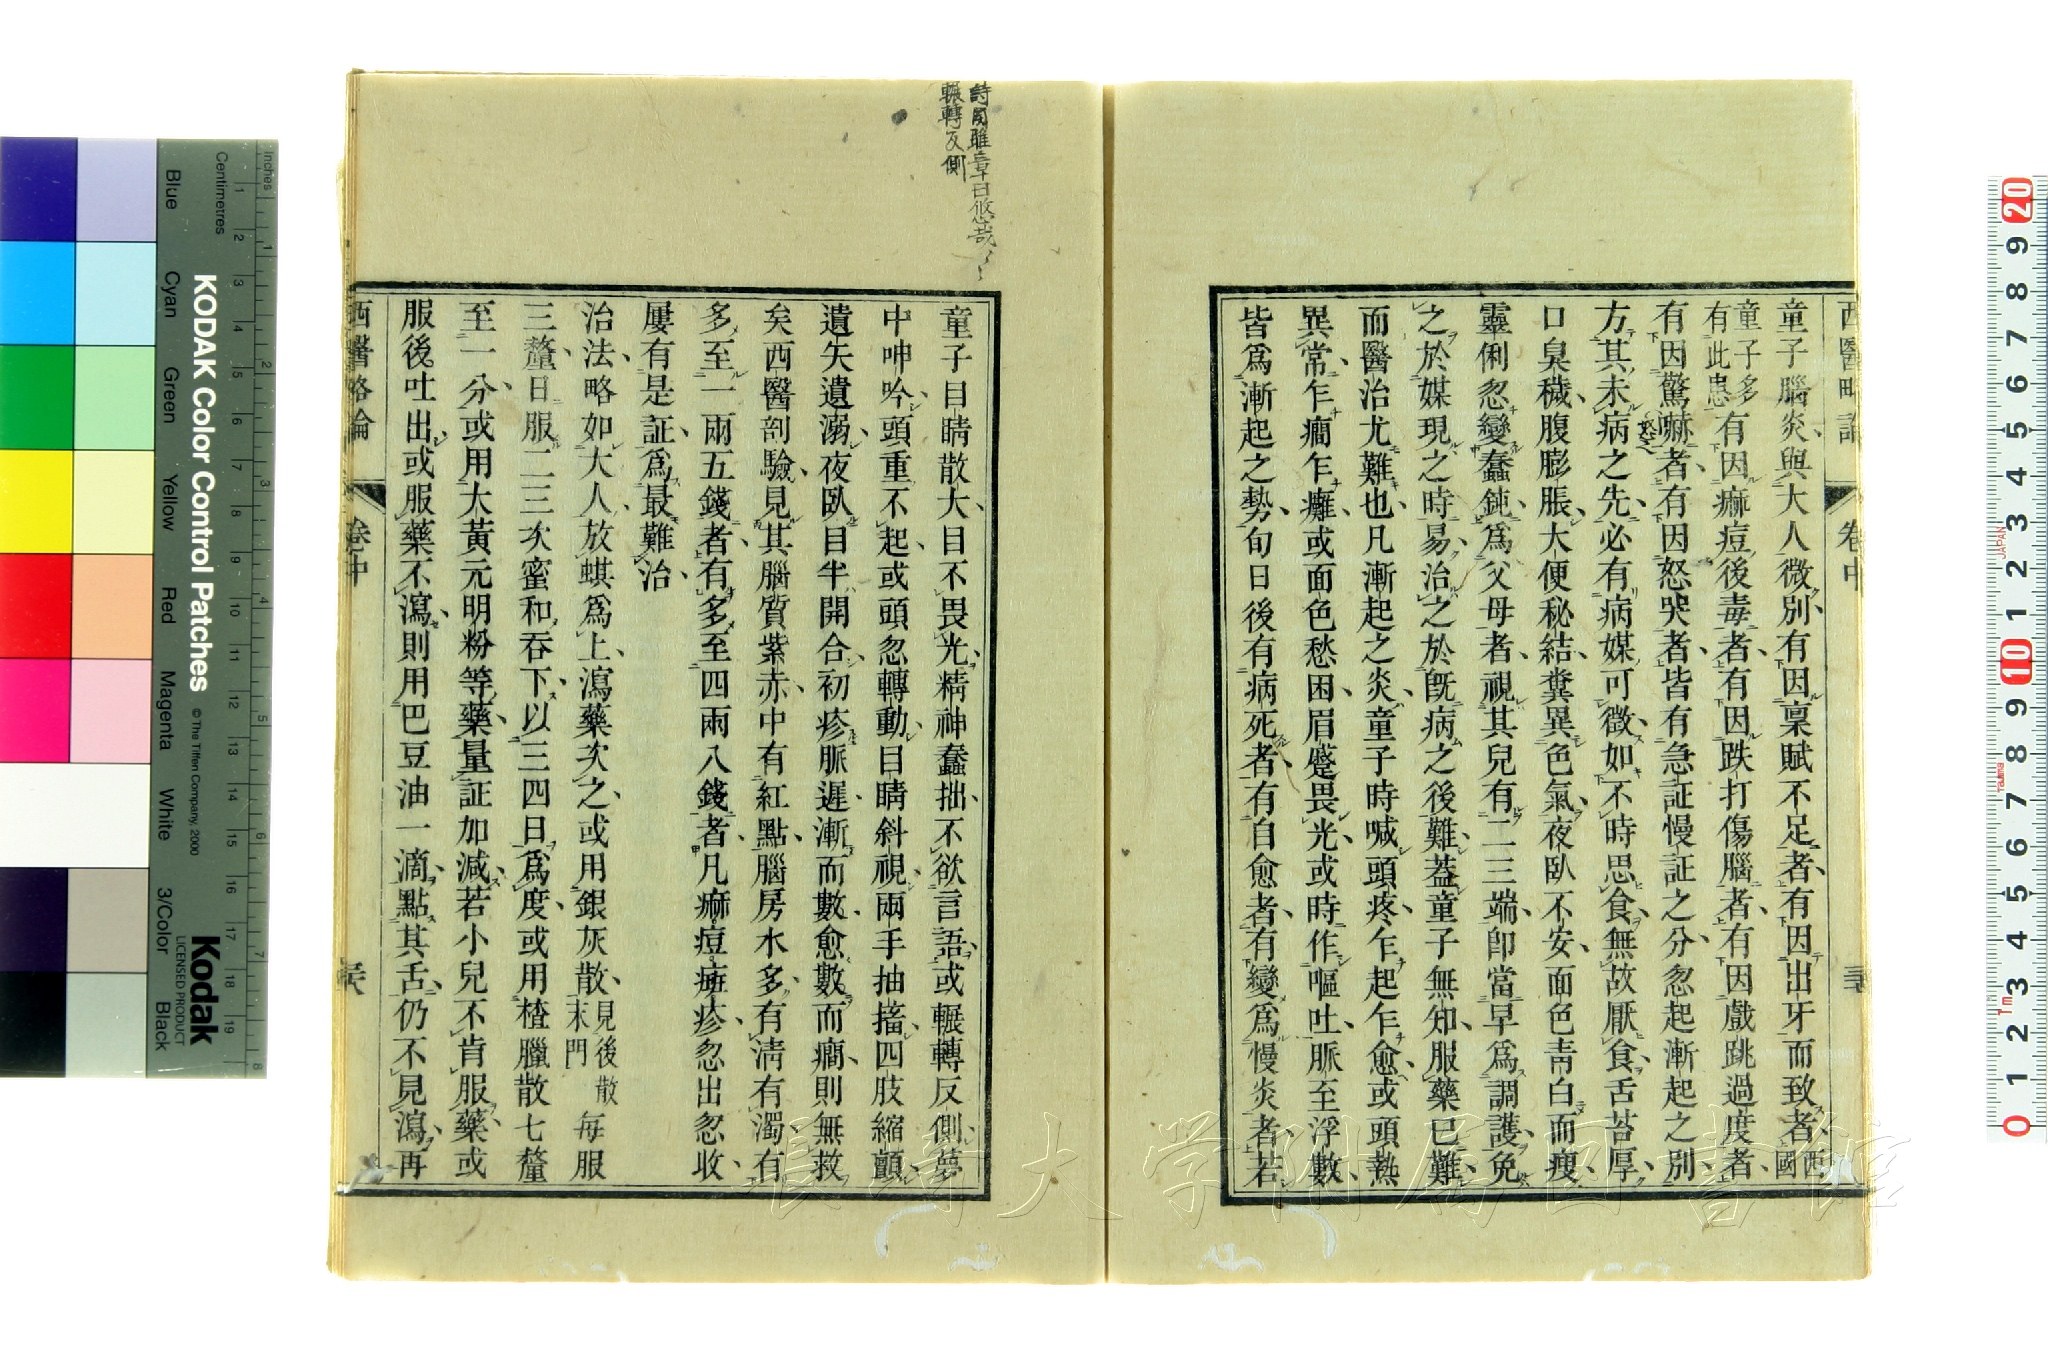 西醫略論
卷中
童子腦炎與大人微別有因稟賦不足者有因出牙而致者西國
童子多有此患有因痲痘後毒者有因跌打傷腦者有因戲跳過度者
有因驚嚇者有因怒哭者皆有急証慢証之分忽起漸起之別
方其未病之先必有病媒可徵如不時思食無故厭食舌苔厚
口臭穢腹膨脹大便秘結糞異色氣夜臥不安面色靑白而瘦
靈俐忽變蠢鈍爲父母者視其兒有一二三端卽當早爲調護免
之於媒現之時易治之於旣病之後難蓋童子無知服藥已難
而醫治尤難也凡漸起之炎童子時喊頭疼乍起乍愈或頭熱
異常乍癎乍癱或面色愁困眉蹙畏光或時作嘔吐脈至浮數
皆爲漸起之勢旬日後有病死者有自愈者有變爲慢炎者若
詩周雖章曰悠哉〻〻
輾轉反側
童子目睛散大目不畏光精神蠢拙不欲言語或輾轉反側夢
中呻吟頭重不起或頭忽轉動目睛斜視兩手抽搐四肢縮顫
遺矢遺溺夜臥目半開合初疹脈遲漸而數愈數而癎則無救
矣西醫剖驗見其腦質紫赤中有紅點腦房水多有淸有濁有
多至一兩五錢者有多至四兩八錢者凡痲痘㾦疹忽出忽收
屢有是証爲最難治
治法略如大人放蜞爲上瀉藥次之或用銀灰散見後散末門每服
三釐日服二三次蜜和吞下以三四日爲度或用楂臘散七釐
至一分或用大黃元明粉等藥量証加減若小兒不肯服藥或
服後吐出或服藥不瀉則用巴豆油一滴點其舌仍不見瀉再
西醫略論
卷中